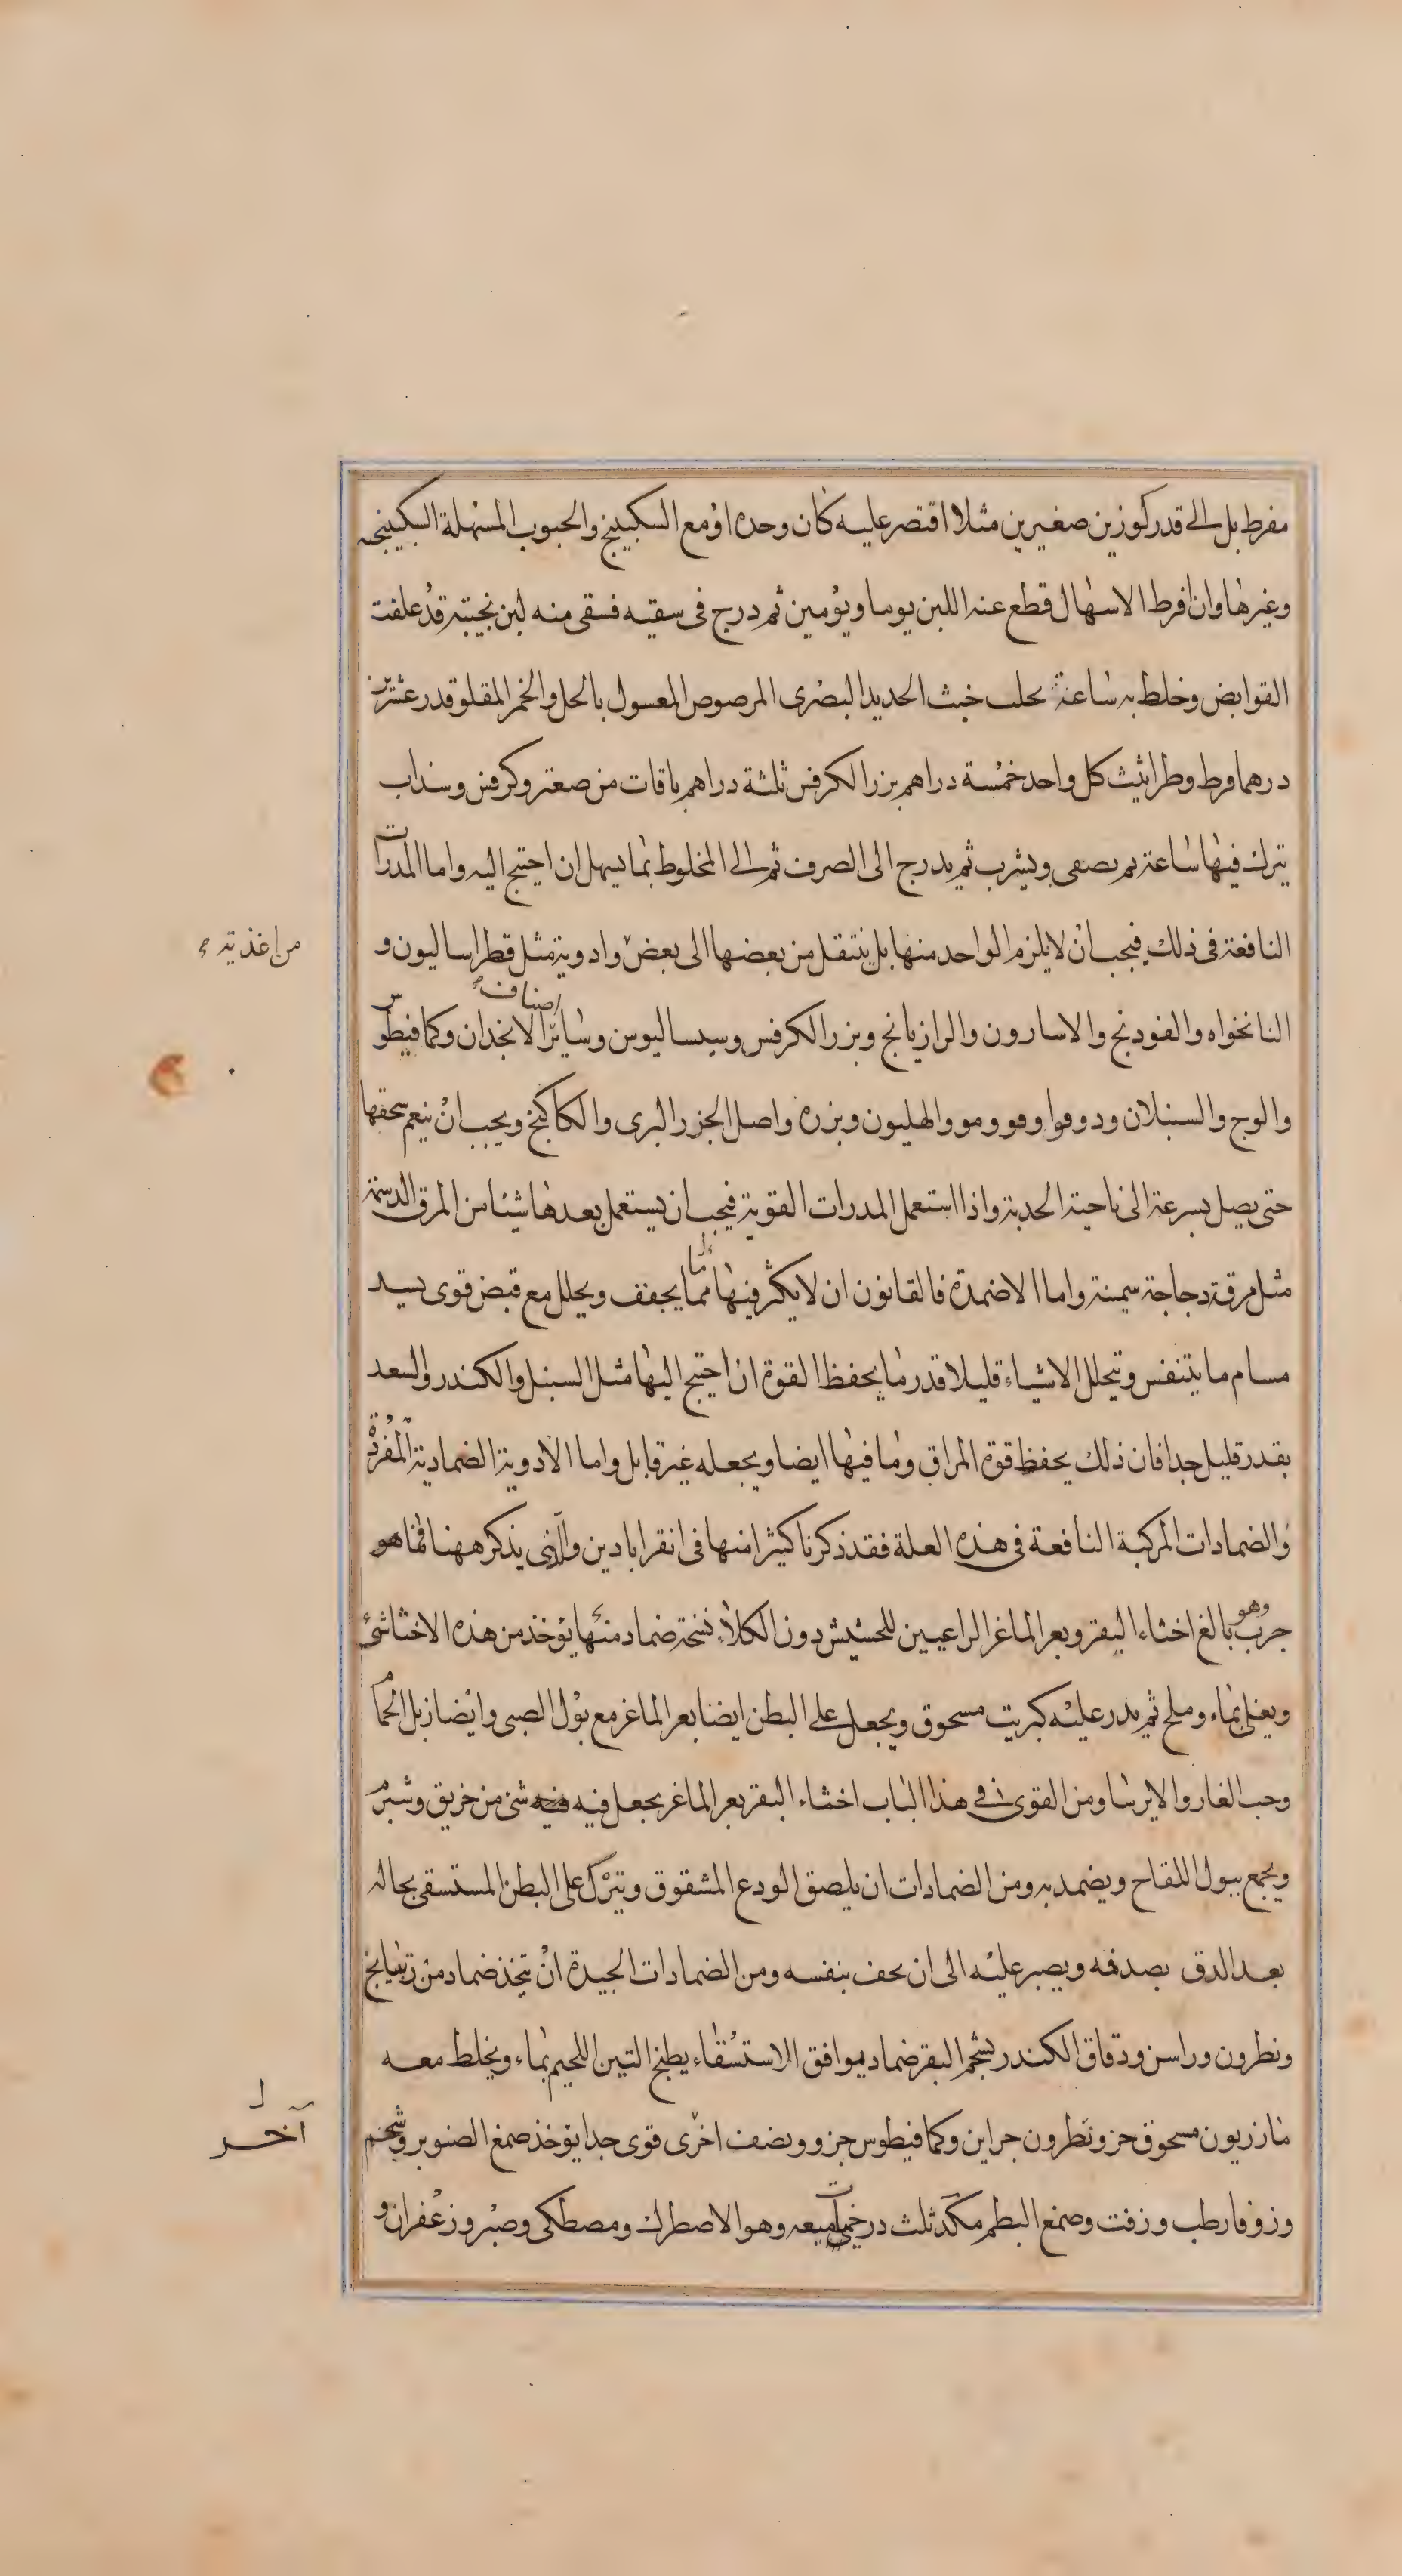 مفرط بل الى قدر كوزين صغيرين مثلا اقتصر عليه كان وحده او مع السكبينج والحبوب المسهلة السكبينجيه
وغيرها وان افرط الاسهال قطع عنه اللبن يوما ويومين ثم درج فى سقيه فسقى منه لبن نجيبة قد علفت
القوابض وخلط به ساعة يحلب خبث الحديد البصرى المرصوص المعسول بالخل والخمر المقلو قدر عشرين
درهما وقرط وطراثيث كل واحد خمسة دراهم بزر الكرفس ثلثة دراهم باقات من صعتر وكرفس وسذاب
يترك فيها ساعة ثم يصفى ويشرب ثم يدرج الى الصرف ثم الى المخلوط بما يسهل ان احتيج اليه واما المدرات
النافعة فى ذلك فيجب ان لا يلزم الواحد منها بل ينتقل من بعضها الى بعض وادوية مثل قطراساليون و
من اغذيته
النانخواه والفودنج والاسارون والرازيانج وبزر الكرفس وسيساليوس وسائر اصناف الانجذان وكمافيطوس
والوج والسنبلان ودوقوا وفو ومو والهليون وبزره واصل الجزر البرى والكاكنج ويجب ان ينعم سحقها
حتى يصل بسرعة الى ناحية الحدبة واذا استعمل المدرات القوية فيجب ان يستعمل بعدها شيئا من المرق الدسمة
مثل مرقة دجاجة سمينة واما الاضمدة فالقانون ان لا يكثر فيها مما يجفف ويحلل مع قبض قوى يسد
مسام ما يتنفس ويتحلل الاشياء قليلا قدر ما يحفظ القوة ان احتيج اليها مثل السنبل والكندر والسعد
بقدر قليل جدا فان ذلك يحفظ قوة المراق وما فيها ايضا ويجعله غير قابل واما الادوية الضمادية المفردة
والضمادات المركبة النافعة فى هذه العلة فقد ذكرنا كثيرا منها فى انقرابادين والذى يذكر ههنا فما هو
جرب وهو بالغ اخثاء البقر وبعر الماغر الراعيين للحشيش دون الكلاء نسخة ضماد منها يؤخذ من هذه الاخثا شئ
ويغلى بماء وملح ثم يدر عليه كبريت مسحوق ويجعل على البطن ايضا بعر الماغر مع بول الصبى وايضا زبل الحمام
وحب الغار والايرسا ومن القوى فى هذا الباب اخثاء البقر بعر الماغر يجعل فيه فيه شئ من خربق وشبرم
ويجمع ببول اللقاح ويضمد به ومن الضمادات ان يلصق الودع المشقوق ويترك على البطن المستسقى بحاله
بعد الدق بصدفه ويصبر عليه الى ان يجف بنفسه ومن الضمادات الجيدة ان يتخذ ضماد من ريتيانج
ونطرون وراسن ودقاق الكندر بشحم البقر ضماد يوافق الاستسقاء يطبخ التين اللحيم بماء ويخلط معه
مازريون مسحوق جزو نطرون جزاين وكمافيطوس جزو ونصف اخرى قوى جدا يؤخذ صمغ الصنوبر وشحم
آخر
وزوفا رطب وزفت وصمغ البطم مكد ثلث درخميات ميعه وهو الاصطرك ومصطكى وصبر وزعفران و